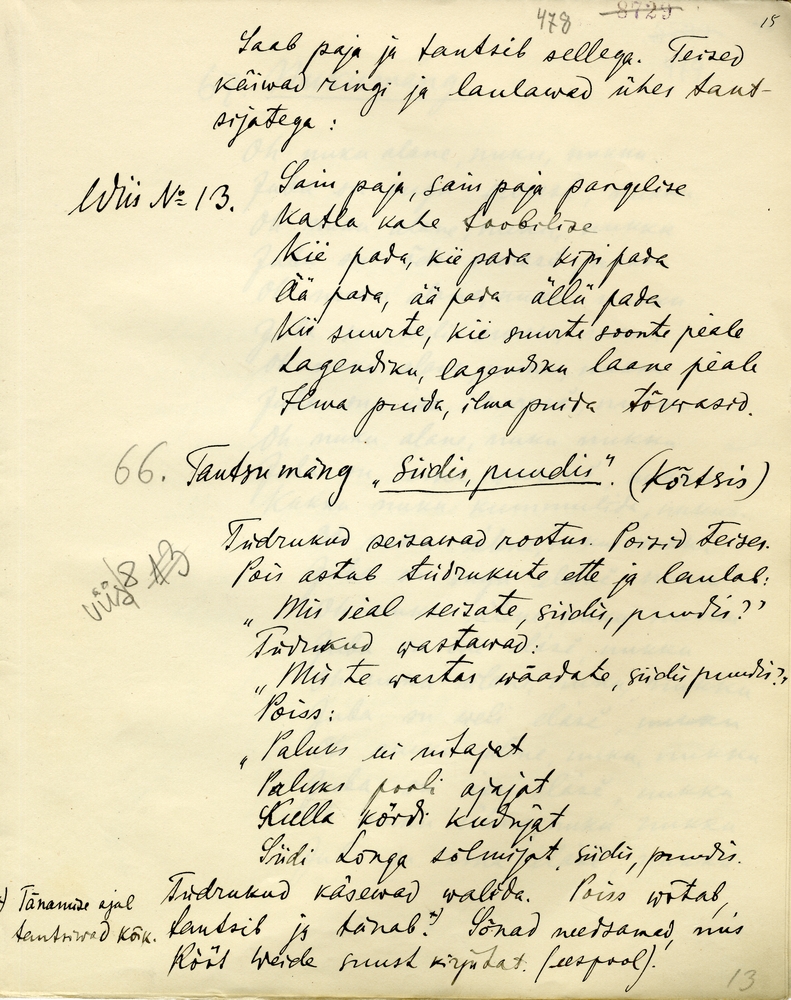 478 8729 15
Saab paja ja tantsib sellega. Teised
käiwad ringi ja laulawad ühes tant-
sijatega :
Wiis № 13.
Sain paja, sain paja pangelise
Katla kahe toobilise
Kii pada, kii pada kipi pada
Ää pada, ää pada ällü pada
Kii suurte, kii suurte soonte peale
Lagendiku, lagendiku laane peale
Ilma puida, ilma puida tõrwasid.
66. Tantsumäng „Siidis, puudis". (Kõrtsis)
viis 8 13
Tüdrukud seisawad rootus. Poisid teises.
Pois astub tüdrukute ette ja laulab:
„Mis seal seisate, siidis, puudis?"
Tüdrukud wastawad:
„Mis te wastas wäadate, siidis puudis?"
Poiss:
„Paluks ui nitajat
Paluks pooli ajajat
Kulla kördi kudujat
Siidi Longa sõlmijat, siidis, puudis.
Tüdrukud käsewad walida. Poiss wõtab,
tantsib ja tänab.*) Sõnad needsamad, mis
Rööt Weide suust kirjutat. (eespool).
*) Tänamise ajal
tantsiwad kõik.
13